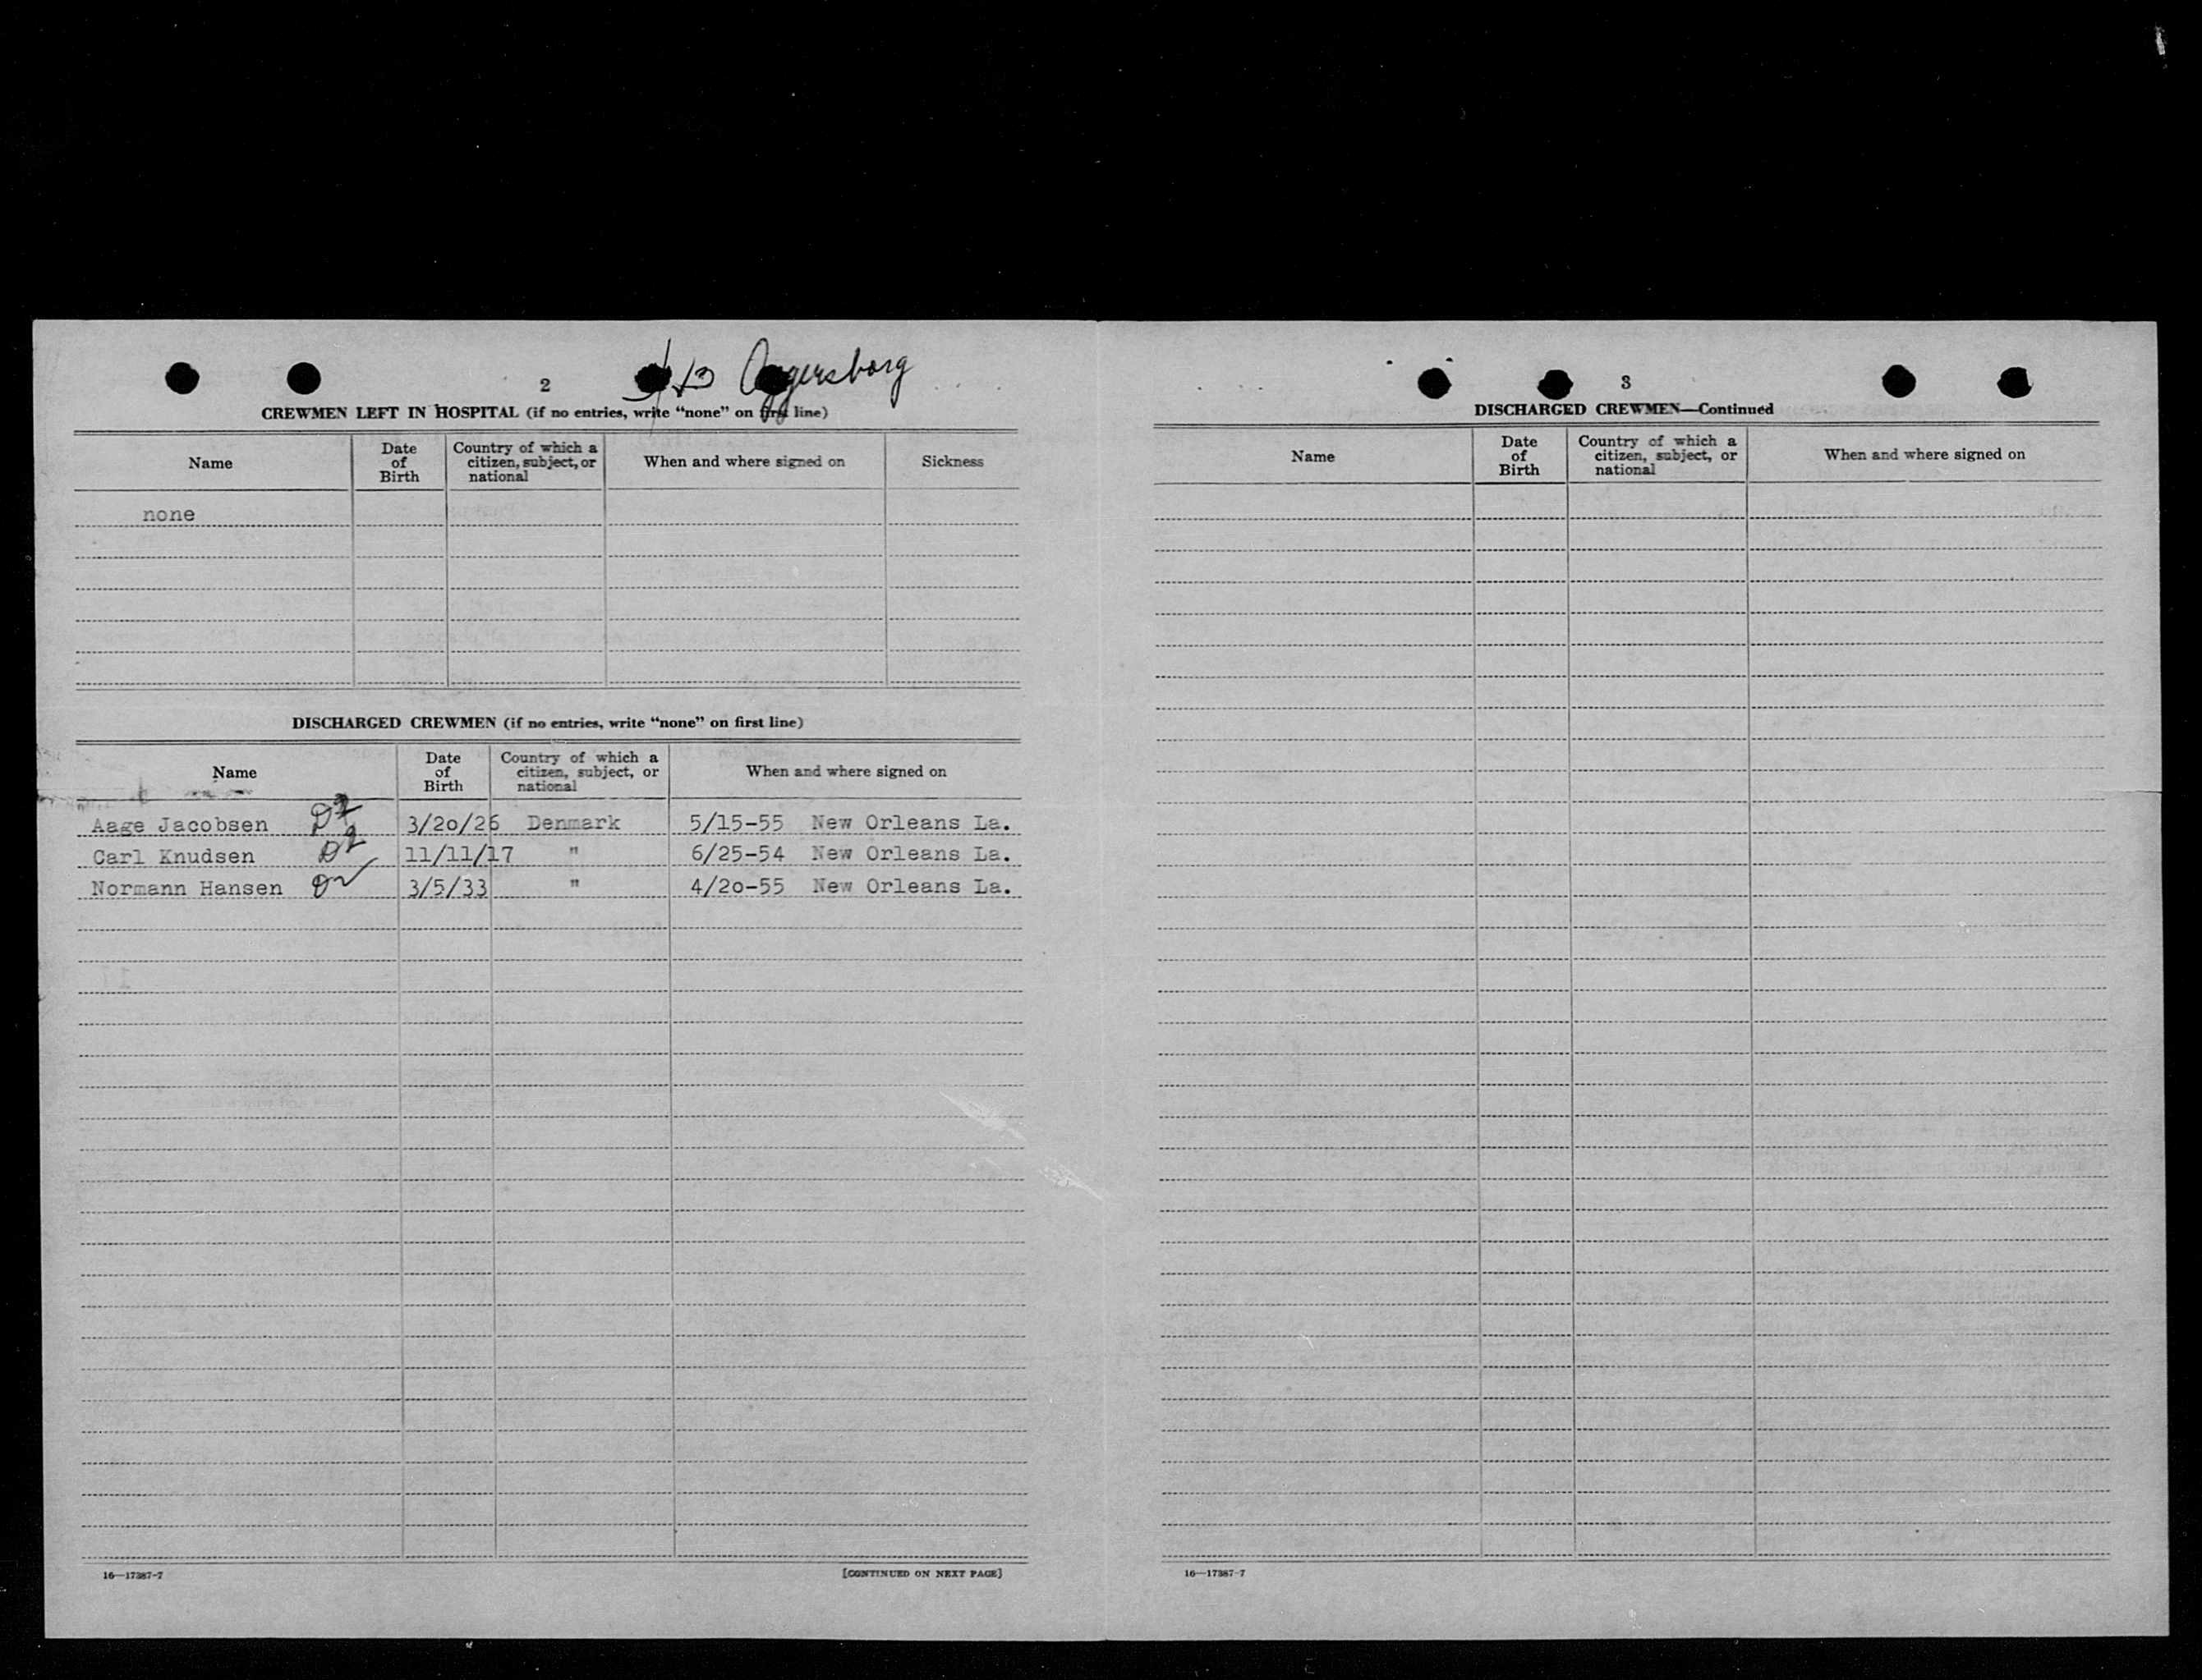 2
Aggersborg
CREWMEN LEFT IN HOSPITAL (if no entries, write “none” on first line)
Name Date of Birth Country of which a citizen, subject, or national When and where signed on Sickness
none
DISCHARGED CREWMEN (if no entries, write “none” on first line)
Name Date of Birth Country of which a citizen, subject, or national When and where signed on
Aage Jacobsen 3/20/26 Denmark 5/15-55 New Orleans La.
Carl Knudsen 11/11/17 " 6/25-54 New Orleans La.
Normann Hansen 3/5/33 " 4/20-55 New Orleans La.
16—17387-7 [CONTINUED ON NEXT PAGE]
3
DISCHARGED CREWMEN—Continued
Name Date of Birth Country of which a citizen, subject, or national When and where signed on
16—17387-7